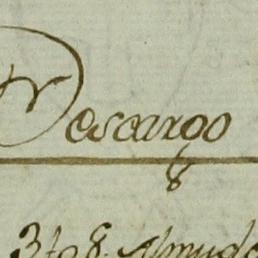 Descargo
3708. Almuda